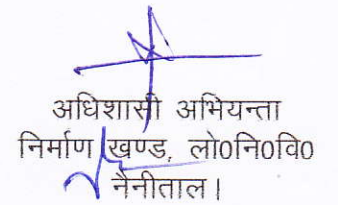 अधिशासी अभियन्ता
निर्माण खण्ड, लो0नि0वि0
नैनीताल।